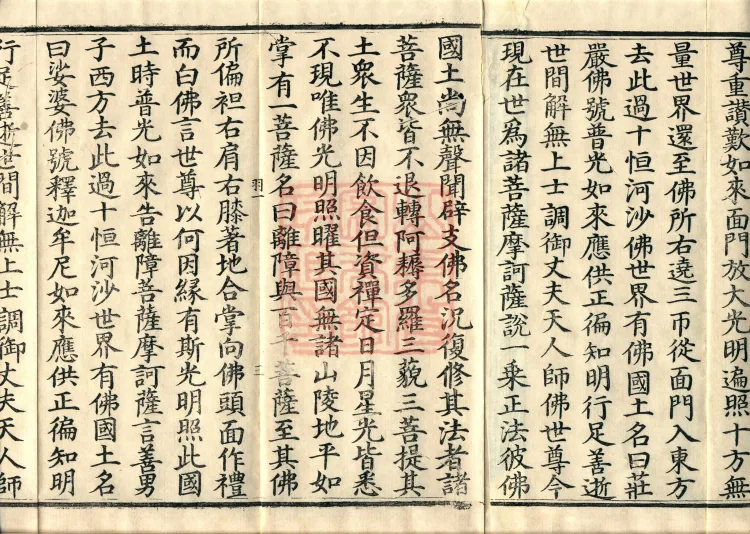 尊重讚歎如來面門放大光明遍照十方無
量世界還至佛所右遶三帀從面門入東方
去此過十恒河沙佛世界有佛國土名曰莊
嚴佛號普光如來應供正徧知明行足善逝
世間解無上士調御丈夫天人師佛世尊今
現在世爲諸菩薩摩訶薩說一乘正法彼佛
國土尚無聲聞辟支佛名况復修其法者諸
菩薩衆皆不退轉阿耨多羅三藐三菩提其
土衆生不因飲食但資禪定日月星光皆悉
不現唯佛光明照曜其國無諸山陵地平如
掌有一菩薩名曰離障與百千菩薩至其佛
羽一
三
所偏袒右肩右膝著地合掌向佛頭面作禮
而白佛言世尊以何因緣有斯光明照此國
土時普光如來告離障菩薩摩訶薩言善男
子西方去此過十恒河沙世界有佛國土名
曰娑婆佛號釋迦牟尼如來應供正徧知明
行足善逝世間解無上士調御丈夫天人師